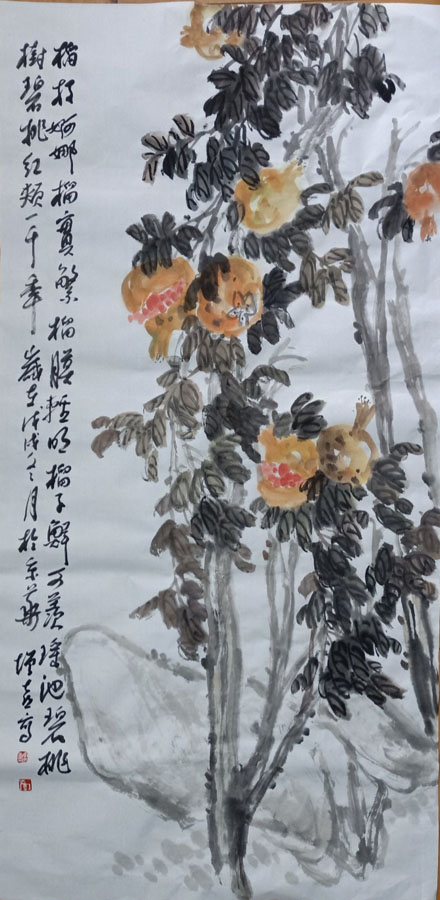 榴枝婀娜榴實繁榴膜輕明榴子鮮可羨瑤池碧桃
樹碧桃紅頰一千年歲在戊戌冬月於京華